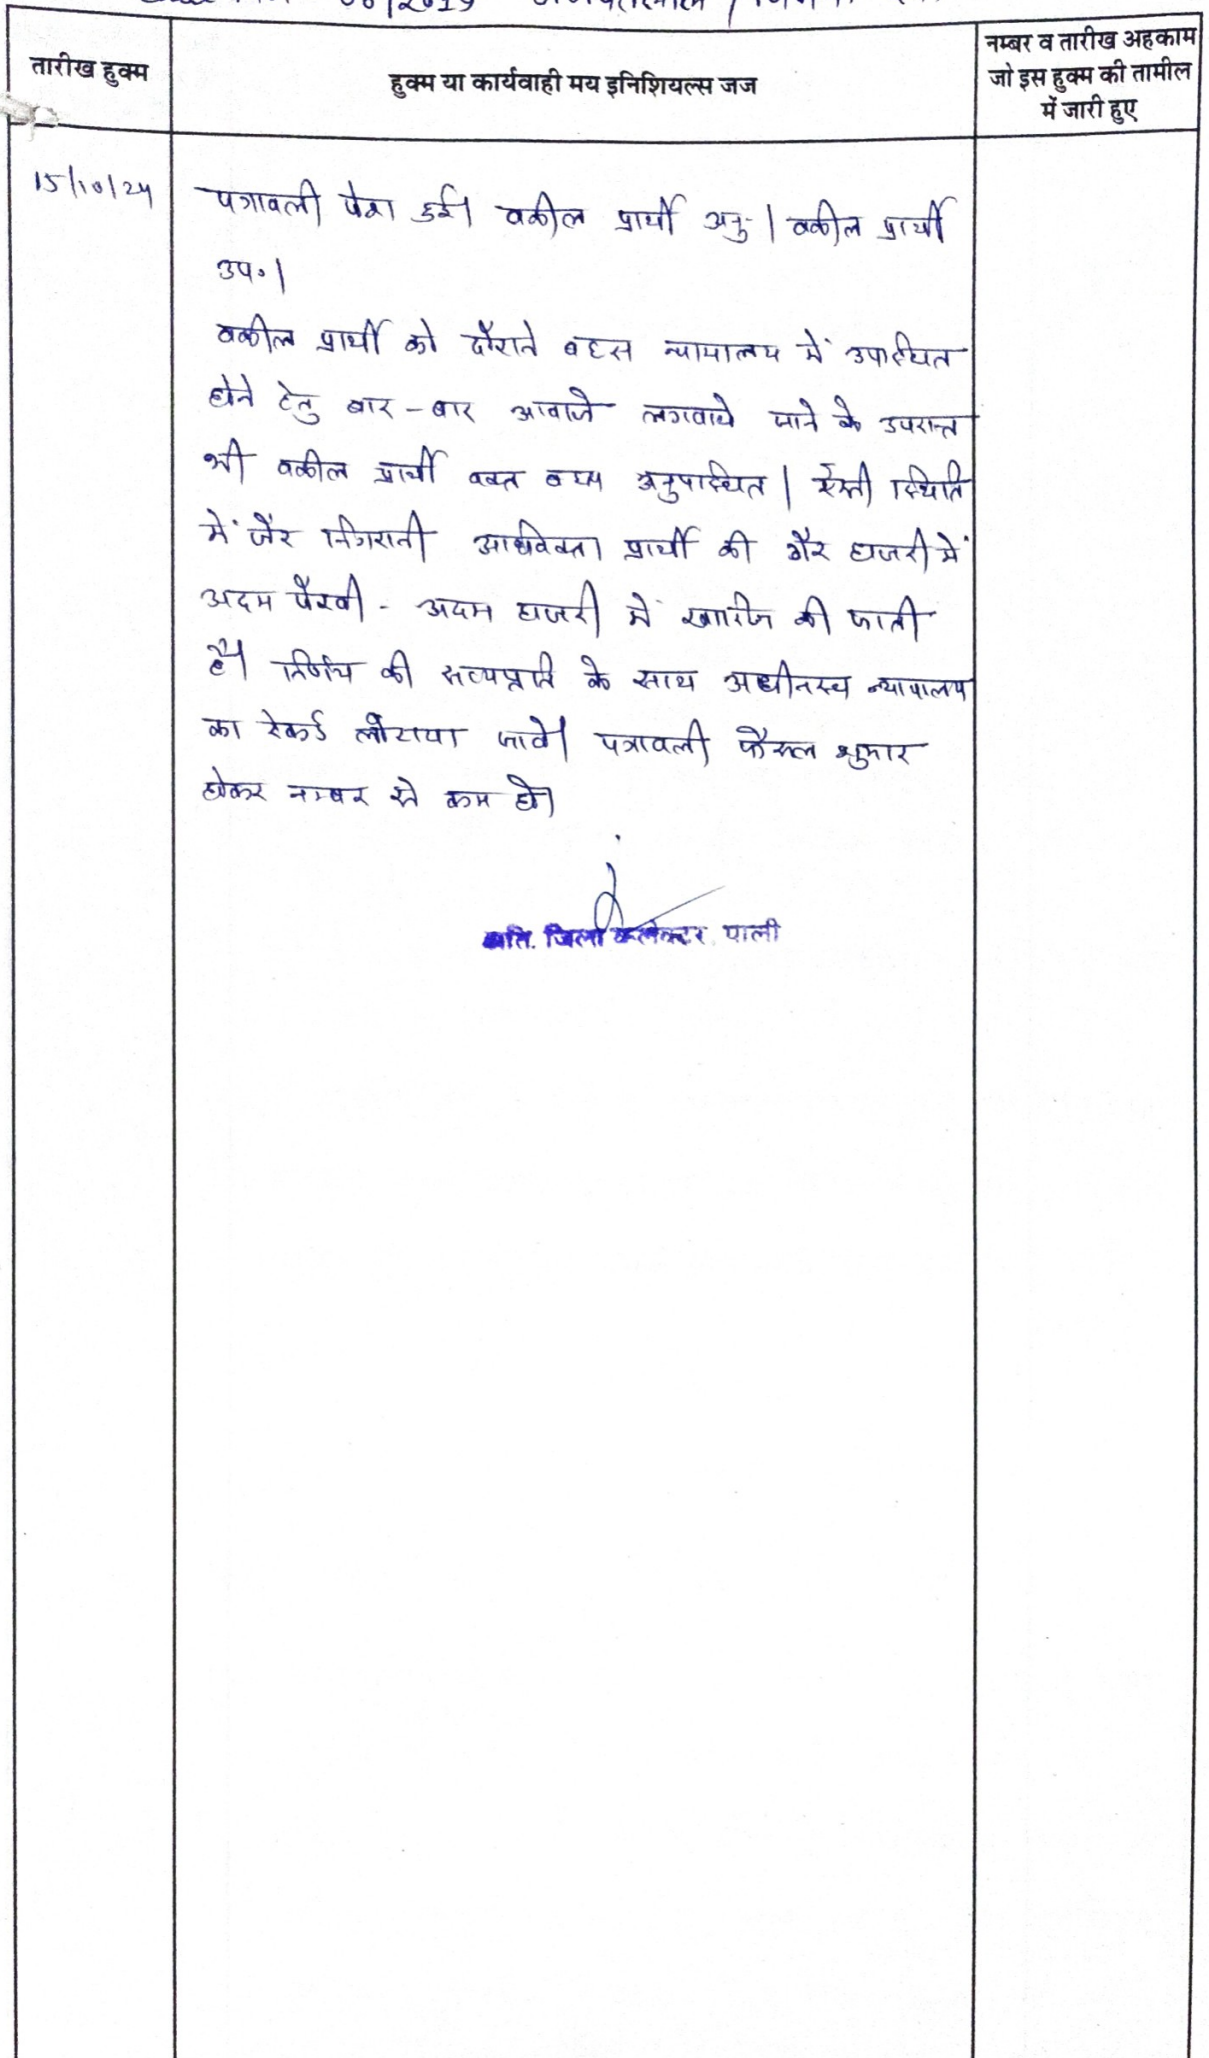 /2019
तारीख हुक्म
हुक्म या कार्यवाही मय इनिशियल्स जज
नम्बर व तारीख अहकाम
जो इस हुक्म की तामील
में जारी हुए
15/10/24
पत्रावली पेश हुई। वकील प्रार्थी अनु। वकील प्रार्थी
उप०।
वकील प्रार्थी को दौराने बहस न्यायालय में उपस्थित
होने हेतु बार-बार आवाजे लगवाये जाने के उपरान्त
भी वकील प्रार्थी वक्त बहस अनुपस्थित। ऐसी स्थिति
में जैर निगरानी अधिवक्ता प्रार्थी की गैर हाजरी में
अदम पैरवी - अदम हाजरी में खारिज की जाती
है। निर्णय की सत्यप्रति के साथ अधीनस्थ न्यायालय
का रेकर्ड लौटाया जावे। पत्रावली फैसल शुमार
होकर नम्बर से कम हो।
अति. जिला कलेक्टर, पाली